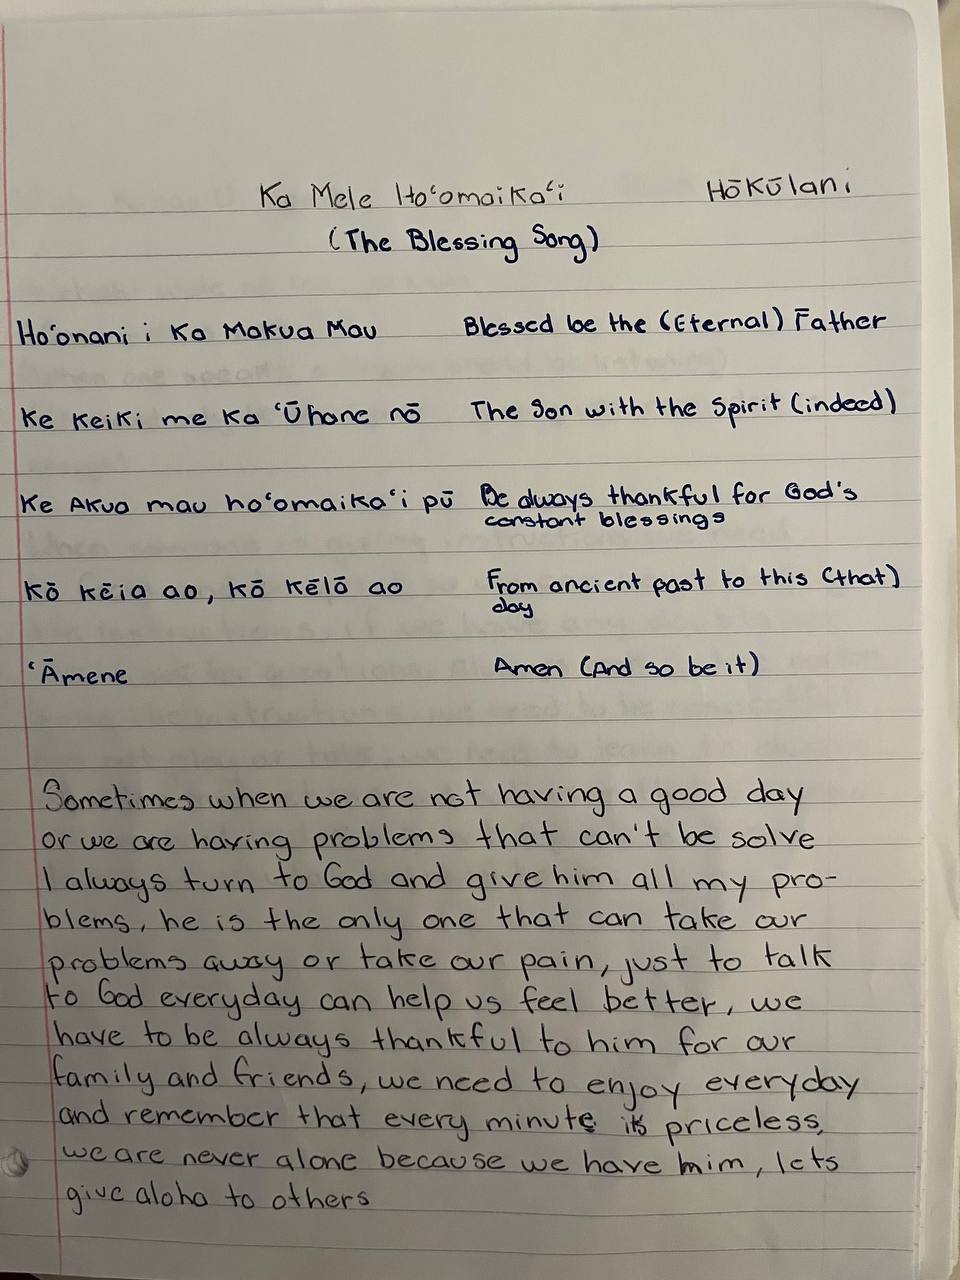 Ka Mele Hoʻomaikaʻi Hōkūlani
(The Blessing Song)
Hoʻonani i Ka Makua Mau Blessed be the (Eternal) Father
Ke Keiki me Ka ʻŪhane nō The Son with the Spirit (indeed)
Ke Akua mau hoʻomaikaʻi pū Be always thankful for God's
constant blessings
Kō Kēia ao, Kō Kēlō ao From ancient past to this (that)
day
ʻĀmene Amen (And so be it)
Sometimes when we are not having a good day
or we are having problems that can't be solve
I always turn to God and give him all my pro-
blems, he is the only one that can take our
problems away or take our pain, just to talk
to God everyday can help us feel better, we
have to be always thankful to him for our
family and friends, we need to enjoy everyday
and remember that every minute is priceless,
we are never alone because we have him, lets
give aloha to others